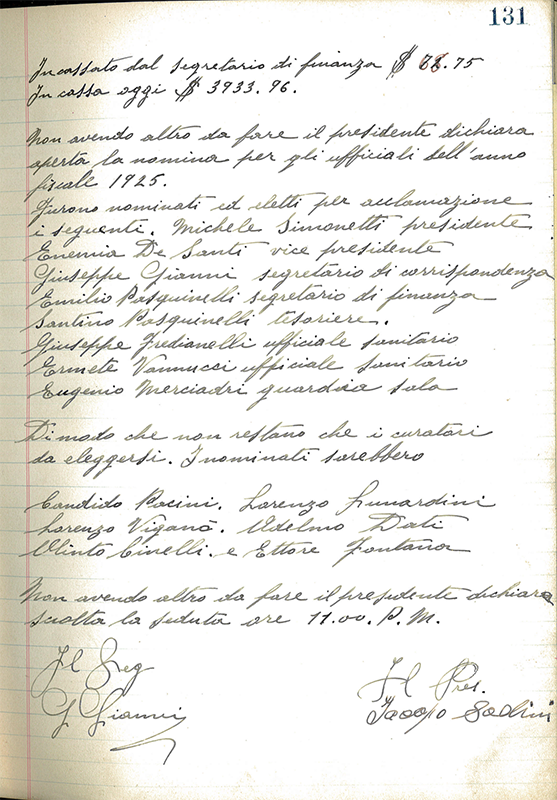 131
Incassato dal segretario di finanza $ 72.75
In cassa oggi $ 3933.96.
Non avendo altro da fare il presidente dichiara
aperta la nomina per gli ufficiali dell'anno
fiscale 1925.
Furono nominati ed eletti per acclamazione
i seguenti. Michele Simonetti presidente
Enemia De Santi vice presidente
Giuseppe Gianni segretario di corrispondenza
Emilio Pasquinelli segretario di finanza
Santino Pasquinelli tesoriere.
Giuseppe Fredianelli ufficiale sanitario
Ermete Vannucci ufficiale sanitario
Eugenio Merciadri guardia sala
Dimodo che non restano che i curatori
da eleggersi. I nominati sarebbero
Candido Pacini. Lorenzo Lunardini
Lorenzo Viganò. Adelmo Dati
Olinto Cinelli. e Ettore Fontana
Non avendo altro da fare il presidente dichiara
sciolta la seduta ore 11.00. P.M.
Il Seg
G Gianni
Il Pres.
Jacopo Sodini